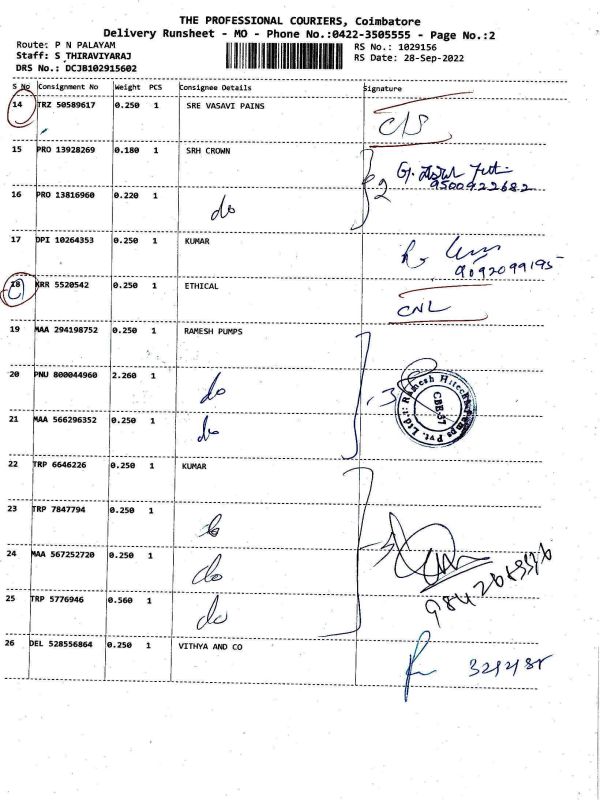 THE PROFESSIONAL COURIERS, Coimbatore
Delivery Runsheet - MO - Phone No.:0422-3505555 - Page No.:2
Route: P N PALAYAM
Staff: S THIRAVIYARAJ
DRS No.: DCJB102915602
RS No.: 1029156
RS Date: 28-Sep-2022
S No Consignment No Weight PCS Consignee Details Signature
14 TRZ 50589617 0.250 1 SRE VASAVI PAINS
C/S
15 PRO 13928269 0.180 1 SRH CROWN
2
9500922682
16 PRO 13816960 0.220 1 do
17 DPI 10264353 0.250 1 KUMAR
9092099195
18 KRR 5520542 0.250 1 ETHICAL
CNL
19 MAA 294198752 0.250 1 RAMESH PUMPS
20 PNU 800044960 2.260 1 do
3
Ramesh Hitech Pumps Pvt. Ltd.
CBE-37
21 MAA 566296352 0.250 1 do
22 TRP 6646226 0.250 1 KUMAR
23 TRP 7847794 0.250 1 do
24 MAA 567252720 0.250 1 do
25 TRP 5776946 0.560 1 do
26 DEL 528556864 0.250 1 VITHYA AND CO